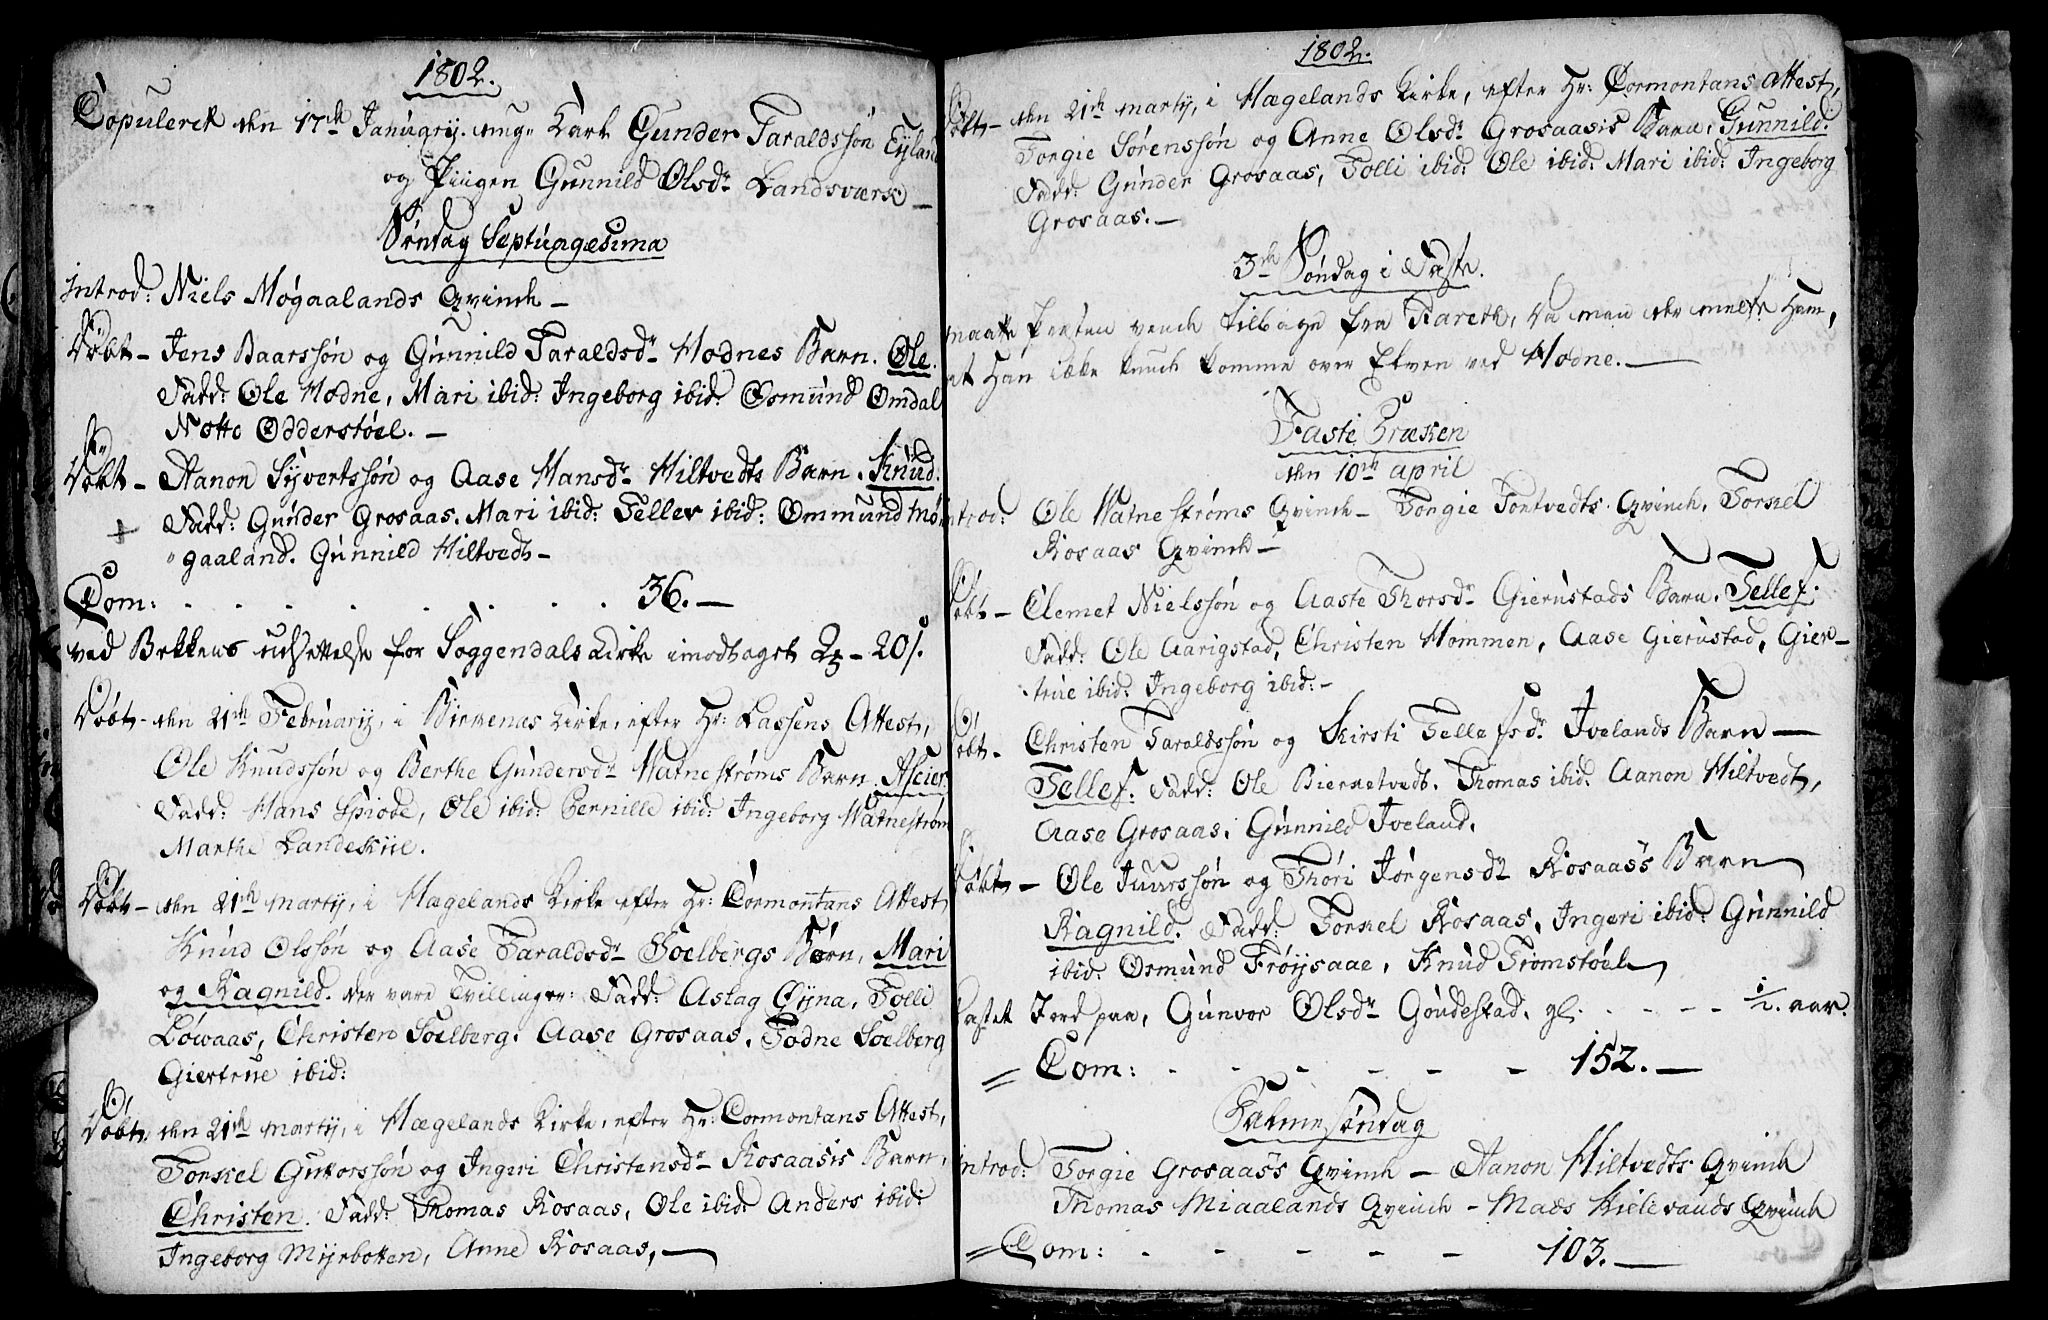 1802.
Copuleret den 17de Januarij. unge Karl Gunder Taraldssøn Eyland
og Piigen Gunnild Olsdr Landsværk —
Søndag Septuagesima
Introd: Niels Møgaalands Qvinde —
Døbt — Jens Baarssøn og Gunnild Taraldsdr Hodnes Barn. Ole.
Fadd: Ole Hodne, Mari ibid: Ingeborg ibid: Osmund Omdal
Notto Odderstøel. —
Døbt — Aanon Syvertssøn og Aase Hansdr Hiltvedts Barn. Knud.
+ Fadd: Gunder Grosaas. Mari ibid: Tellev ibid: Ommund Mø
"gaaland. Gunnild Hiltvedt —
Com: . . . . . . . . 36. —
ved Bekkens udsættelse for Soggendals Kirke imodtaget 2 – 20 s.
Døbt — den 21de Februarij, i Birkenæs Kirke, efter Hr: Lassens Attest,
Ole Knudssøn og Berthe Gundersdr Watnestrøms Barn. Aseier
Fadd: Hans Spiode, Ole ibid: Pernille ibid: Ingeborg Watnestrøm
Marthe Landeskiie.
Døbt — den 21de Martij, i Hægelands Kirke efter Hr: Cormontans Attest
Knud Olssøn og Aase Taraldsdr Soelbergs Børn, Mari
og Ragnild. der vare Tvillinger: Fadd: Aslag Øyna, Tolli
Løwaas, Christen Soelberg. Aase Grosaas. Todne Soelberg
Giertrue ibid:
Døbt den 21de Martij, i Hægelands Kirke, efter Hr: Cormontans Attest,
Torkel Guttorssøn og Ingeri Christensdr Rosaasis Barn,
Christen. Fadd: Thomas Rosaas, Ole ibid: Anders ibid:
Ingeborg Myrbotten, Anne Rosaas, —
1802.
Døbt — den 21de Martij, i Hægelands Kirke, efter Hr: Cormontans Attest,
Torgie Sørenssøn og Anne Olsdr Grosaasis Barn, Gunnild.
Fadd: Gunder Grosaas, Tolli ibid: Ole ibid: Mari ibid: Ingeborg
Grosaas. —
3de Søndag i Faste.
maatte Præsten vende tilbage fra Kareth, da man der meldte Ham,
at Han ikke kunde komme over Elven ved Hodne. —
Faste Præken
den 10de April
Introd: Ole Watnestrøms Qvinde — Torgie Tontvedts Qvinde, Torkel
Rosaas Qvinde —
Døbt — Clemet Nielssøn og Aaste Thorsdr Gierustads Barn. Tellef.
Fadd: Ole Aarigstad, Christen Hommen, Aase Gierustad, Gier-
true ibid: Ingeborg ibid: —
Døbt — Christen Taraldssøn og Kirsti Tellefsdr Ivelands Barn —
Tellef. Fadd: Ole Birketvedt. Thomas ibid. Aanon Hiltvedt,
Aase Grosaas. Gunnild Iveland.
Døbt — Ole Juurssøn og Thori Jørgensdr Rosaas's Barn
Ragnild. Fadd: Torkel Rosaas, Ingeri ibid: Gunnild
ibid: Osmund Frøysaae, Knud Tromstøel
Castet Jord paa, Gunvor Olsdr Goudestad. gl. - - - - ½. aar.
= Com: - - - - - - 152. —
Palmesøndag
Introd: Torgie Grosaas's Qvinde — Aanon Hiltvedts Qvinde
Thomas Miaalands Qvinde — Mads Kielesands Qvinde
= Com: - - - - - 103. —